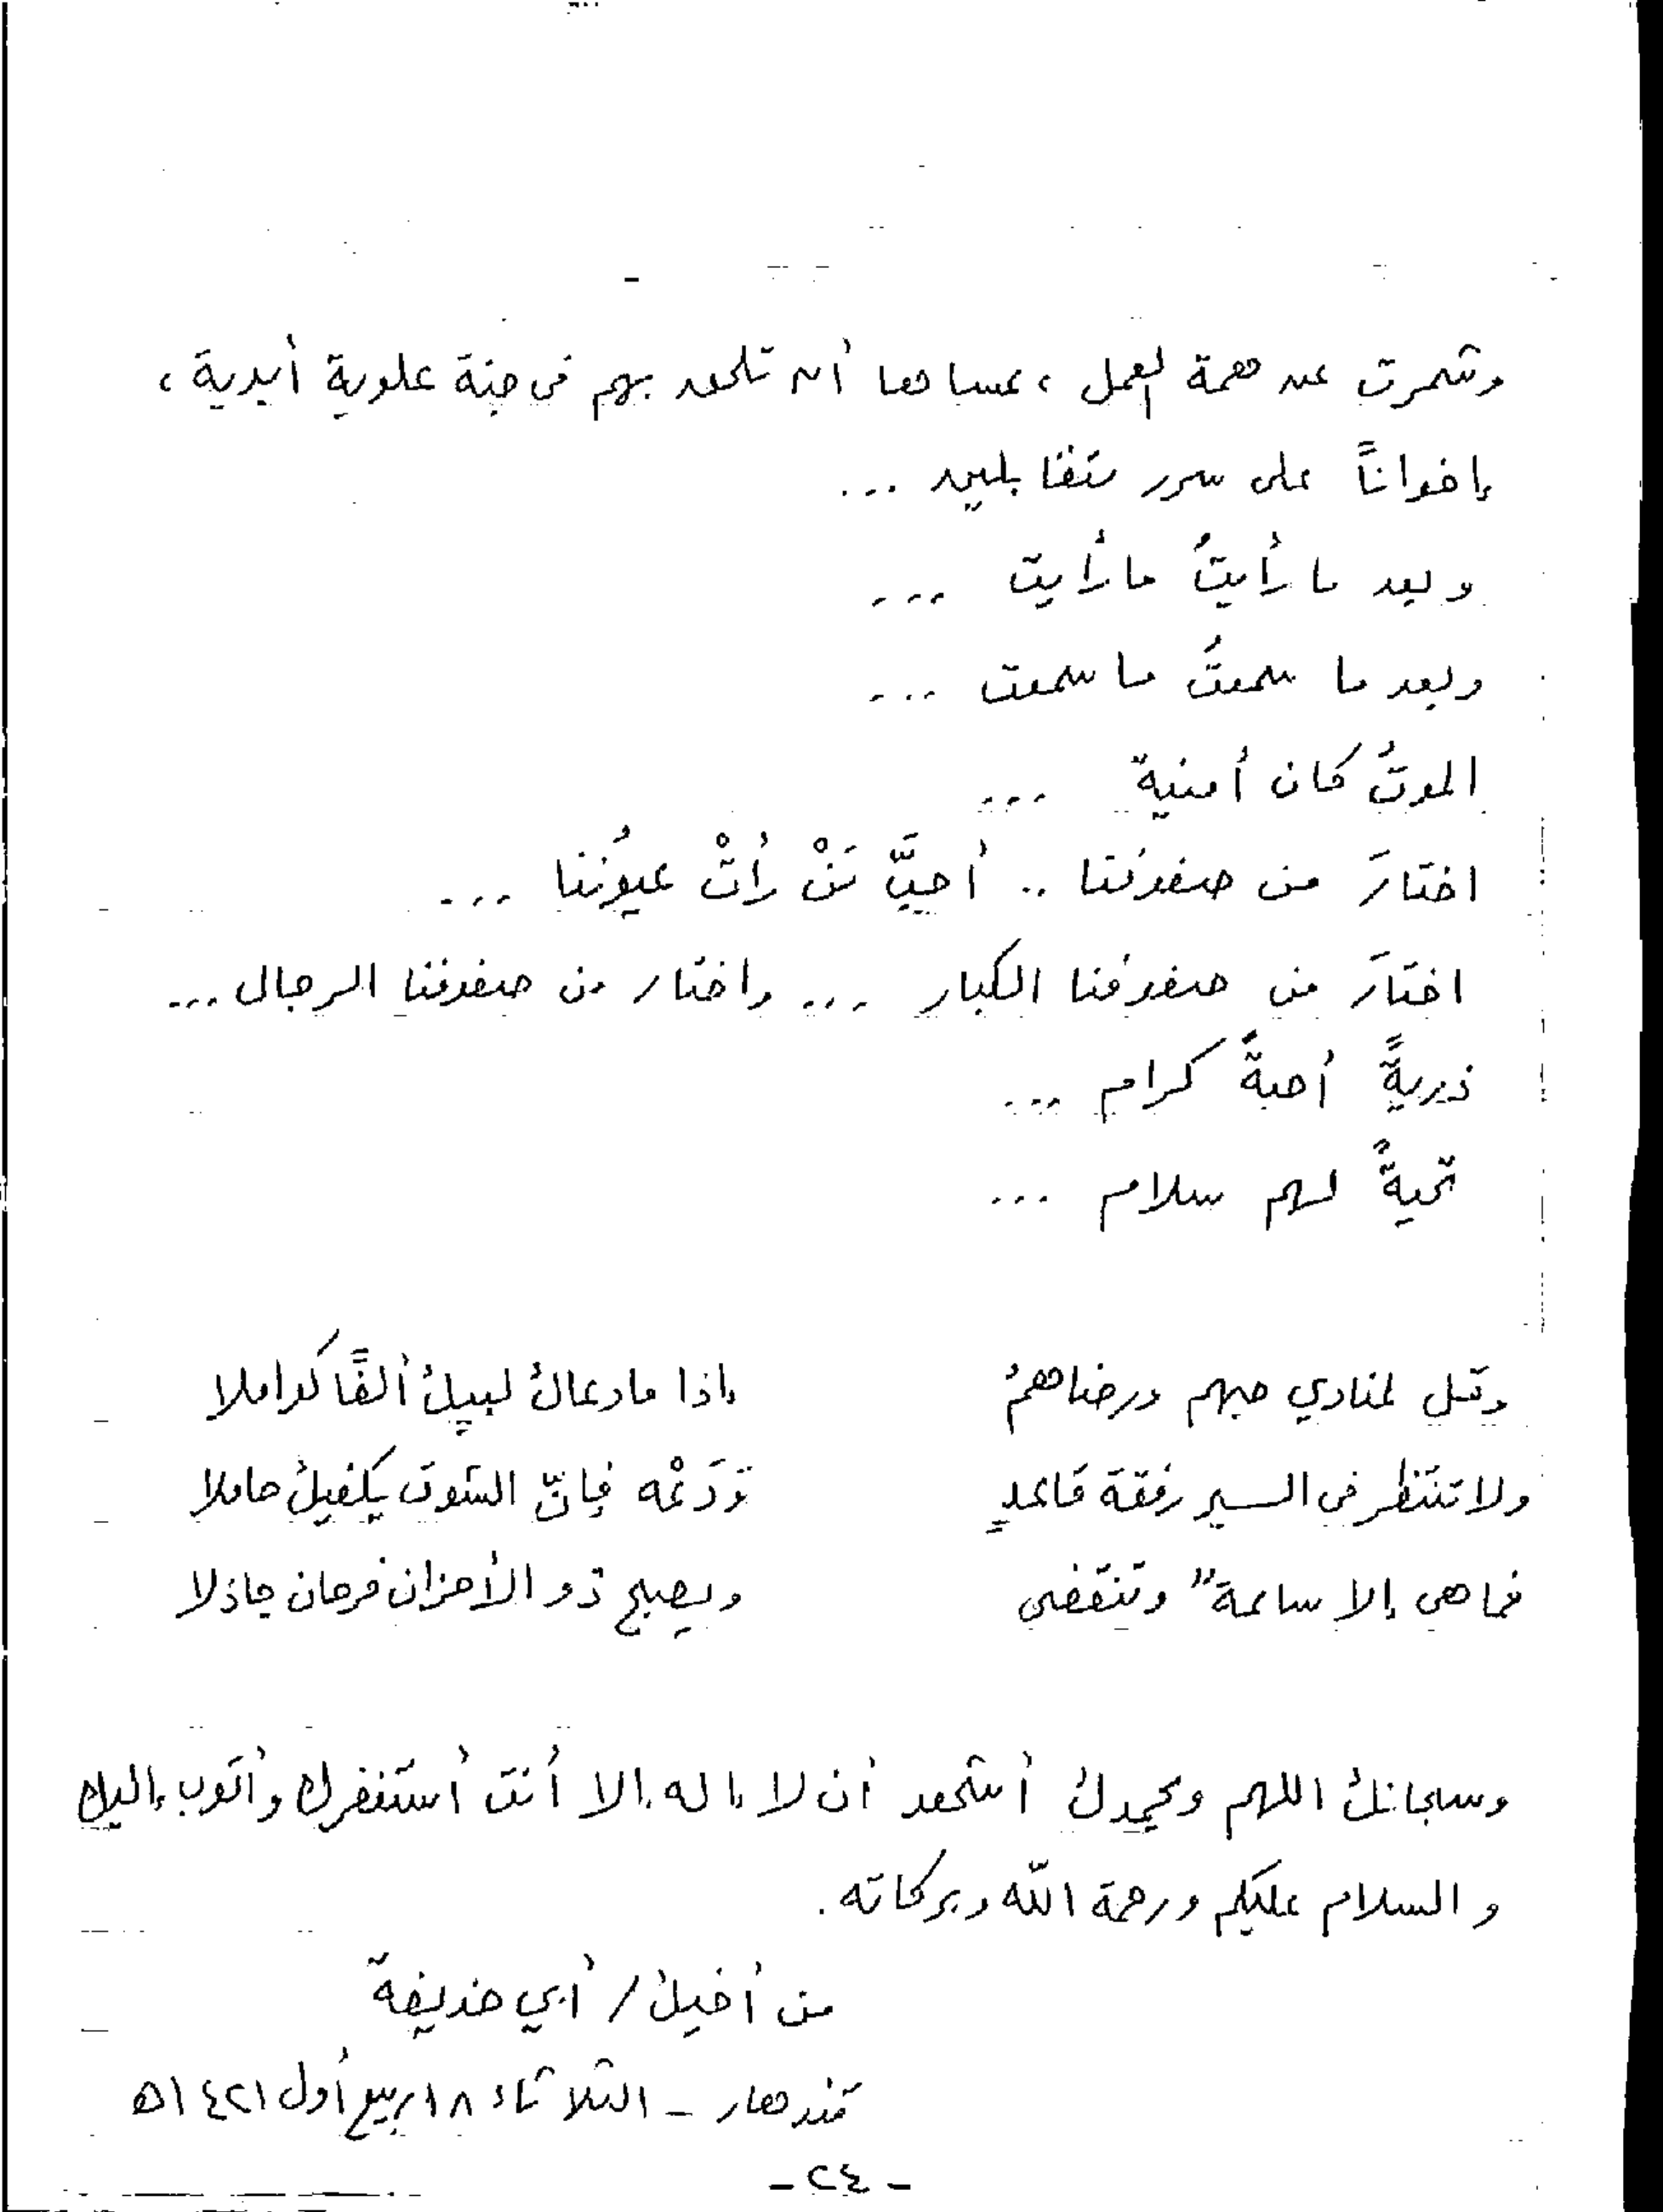 وشمرت عن همة العمل ، عساها أن تلحق بهم في جنة علوية أبدية ،
إخواناً على سرر متقابلين ...
وبعد ما رأيتُ ما رأيت ...
وبعد ما سمعتُ ما سمعت ...
الموتُ كان أمنية ...
اختارَ من صفوفنا .. أحبَّ مَنْ رأتْ عيوُننا ...
اختارَ من صفوفنا الكبار ... واختار من صفوفنا الرجال ...
ذريةً أحبةً كرام ...
تحيةً لهم سلام ...
وقل لمنادي حبهم ورضاهمُ إذا ما دعاك لبيك ألفًا كواملا
ولا تنتظر في السير رفقة قاعدٍ وَدَعْه فإنّ الشوق يكفيك حاملا
فما هي إلا ساعةٌ وتنقضي ويصبح ذو الأحزان فرحان جاذلا
وسبحانك اللهم وبحمدك أشهد أن لا إله إلا أنت أستغفرك وأتوب إليك
والسلام عليكم ورحمة الله وبركاته .
من أخيك / أبي حذيفة
قندهار - الثلاثاء ١٨ ربيع أول ١٤٢١ هـ
- ٢٤ -